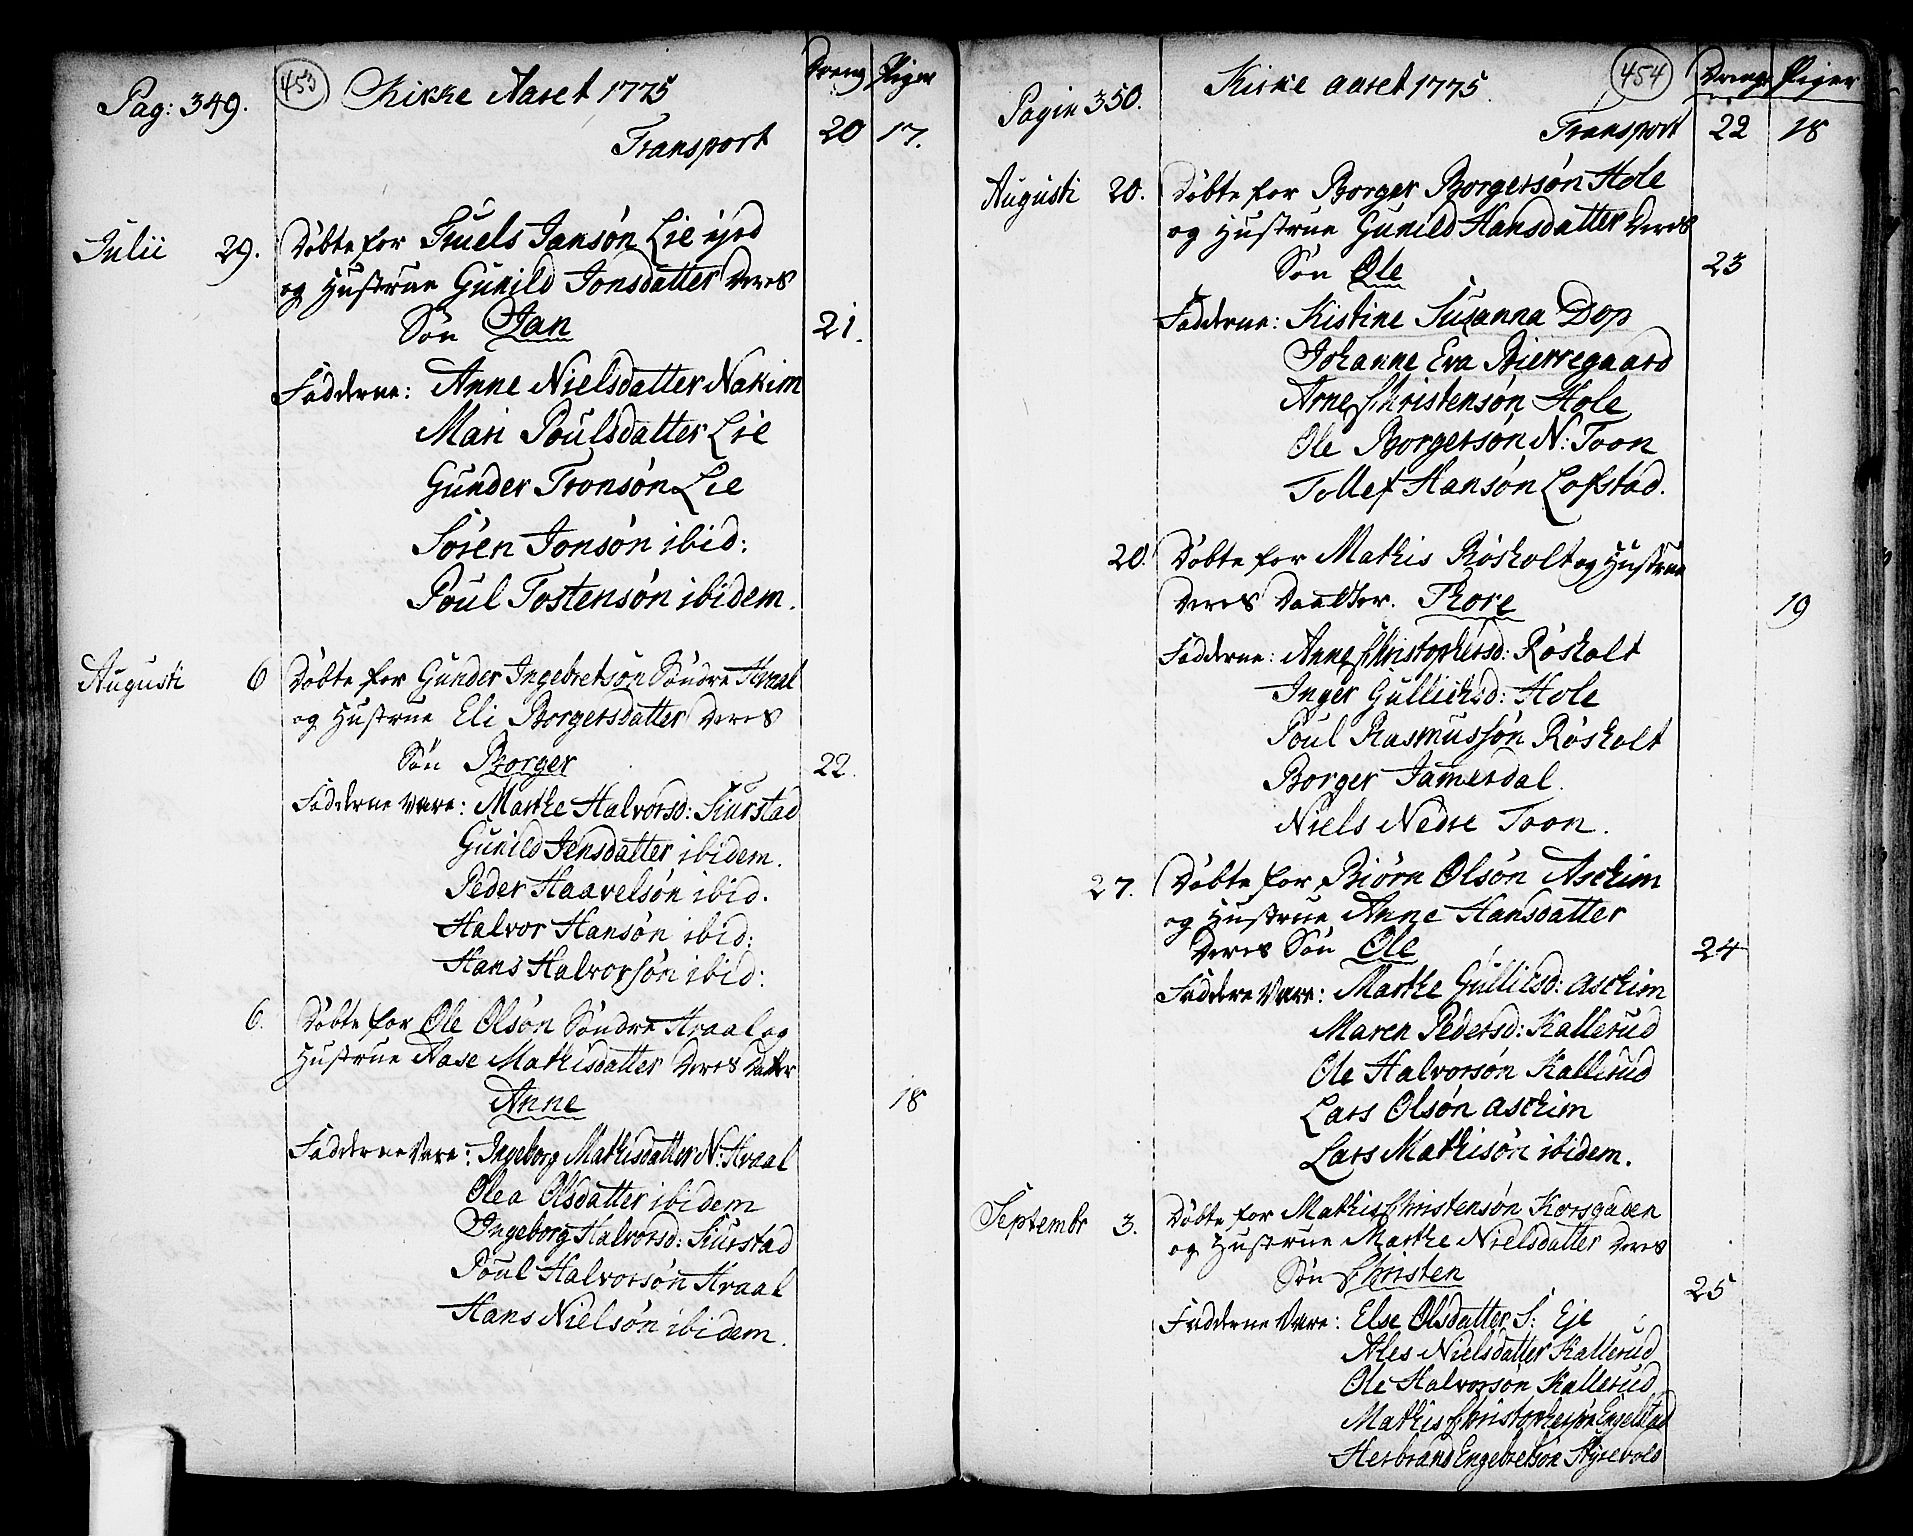 Pag: 349. 453 Kirke Aaret 1775 Dreng Piger
Transport 20 17.
Julii 29. Döbte for Truels Jansøn Lie
og Hustrue Gunild Jonsdatter Deres
Søn Jan 21.
Fadderne: Anne Nielsdatter Nakim
Mari Poulsdatter Lie
Gunder Tronsøn Lie
Sören Jonsøn ibid:
Poul Tostensøn ibidem.
Augusti 6 Döbte for Gunder Ingebretsøn Söndre Kraal
og Hustrue Eli Borgersdatter Deres
Søn Borger 22.
Fadderne vare: Marthe Halvorsd: Skurstad
Gunild Jensdatter ibidem.
Peder Haavelsøn ibid.
Halvor Hansøn ibid:
Hans Halvorsøn ibid:
6. Döbte for Ole Olsøn Söndre Kraal og
Hustrue Aase Mathisdatter Deres Datter
Anne 18
Fadderne vare: Ingeborg Mathisdatter N: Kraal
Olea Olsdatter ibidem
Ingeborg Halvorsd: Skurstad
Poul Halvorsøn Kraal
Hans Nielsøn ibidem.
Pagin 350. Kirke aaret 1775. 454 Drenge Piger
Transport 22 18
Augusti 20. Döbte for Borger Borgersøn Hole
og Hustrue Gunild Hansdatter Deres
Søn Ole 23
Fadderne: Kistine Susanna Dop
Johanne Eva Bierregaard
Arne Christensøn Hole
Ole Borgersøn N: Toon
Tollef Hansøn Lofstad.
20. Döbte for Mathis Røsholt og Hustrue
Deres Daatter. Thore 19
Fadderne: Anne Christophersd: Røsholt
Inger Gullichsd: Hole
Poul Rasmussøn Røsholt
Borger Jamerdal.
Niels Nedre Toon.
27. Döbte for Biørn Olsøn Aschim
og Hustrue Anne Hansdatter
Deres Søn Ole 24
Faddere vare: Marthe Gullicsd: aschim
Maren Pedersd: Kallerud
Ole Halvorsøn Kallerud
Lars Olsøn aschim
Lars Mathisøn ibidem.
Septembr 3. Döbte for Mathis Christensøn Korsgaden
og Hustrue Marthe Nielsdatter Deres
Søn Christen 25
Fadderne vare: Else Olsdatter S: Eje
Ales Nielsdatter Kallerud
Ole Halvorsøn Kallerud
Mathis Christophersøn Engelstad
Herbrand Engebretsøn Styrevold